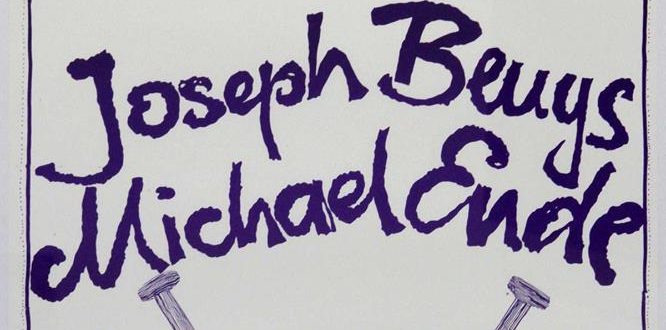 Joseph Beuys
Michael Ende